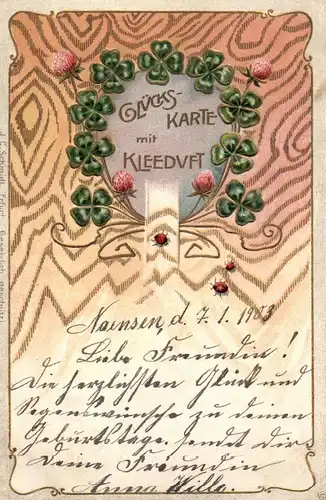 GLÜCKS-
KARTE
mit
KLEEDUFT
Naensen, d. 7. 1. 1903
Liebe Freundin!
Die herzlichsten Glück und
Segenswünsche zu deinem
Geburtstage sendet Dir
Deine Freundin
Anna Wille.
J. C. Schmidt, Erfurt. Gesetzlich geschützt.